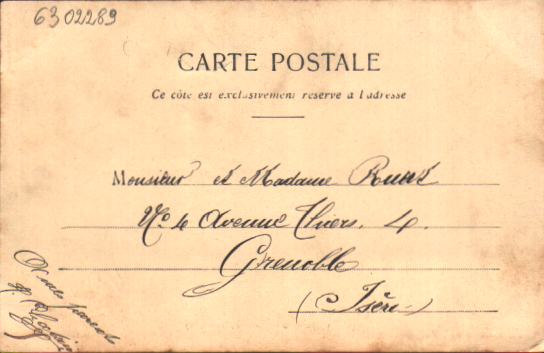 6302289
CARTE POSTALE
Ce côté est exclusivement réservé à l'adresse
Monsieur et Madame
No 4 Avenue Thiers, 4.
Grenoble
(Isère)